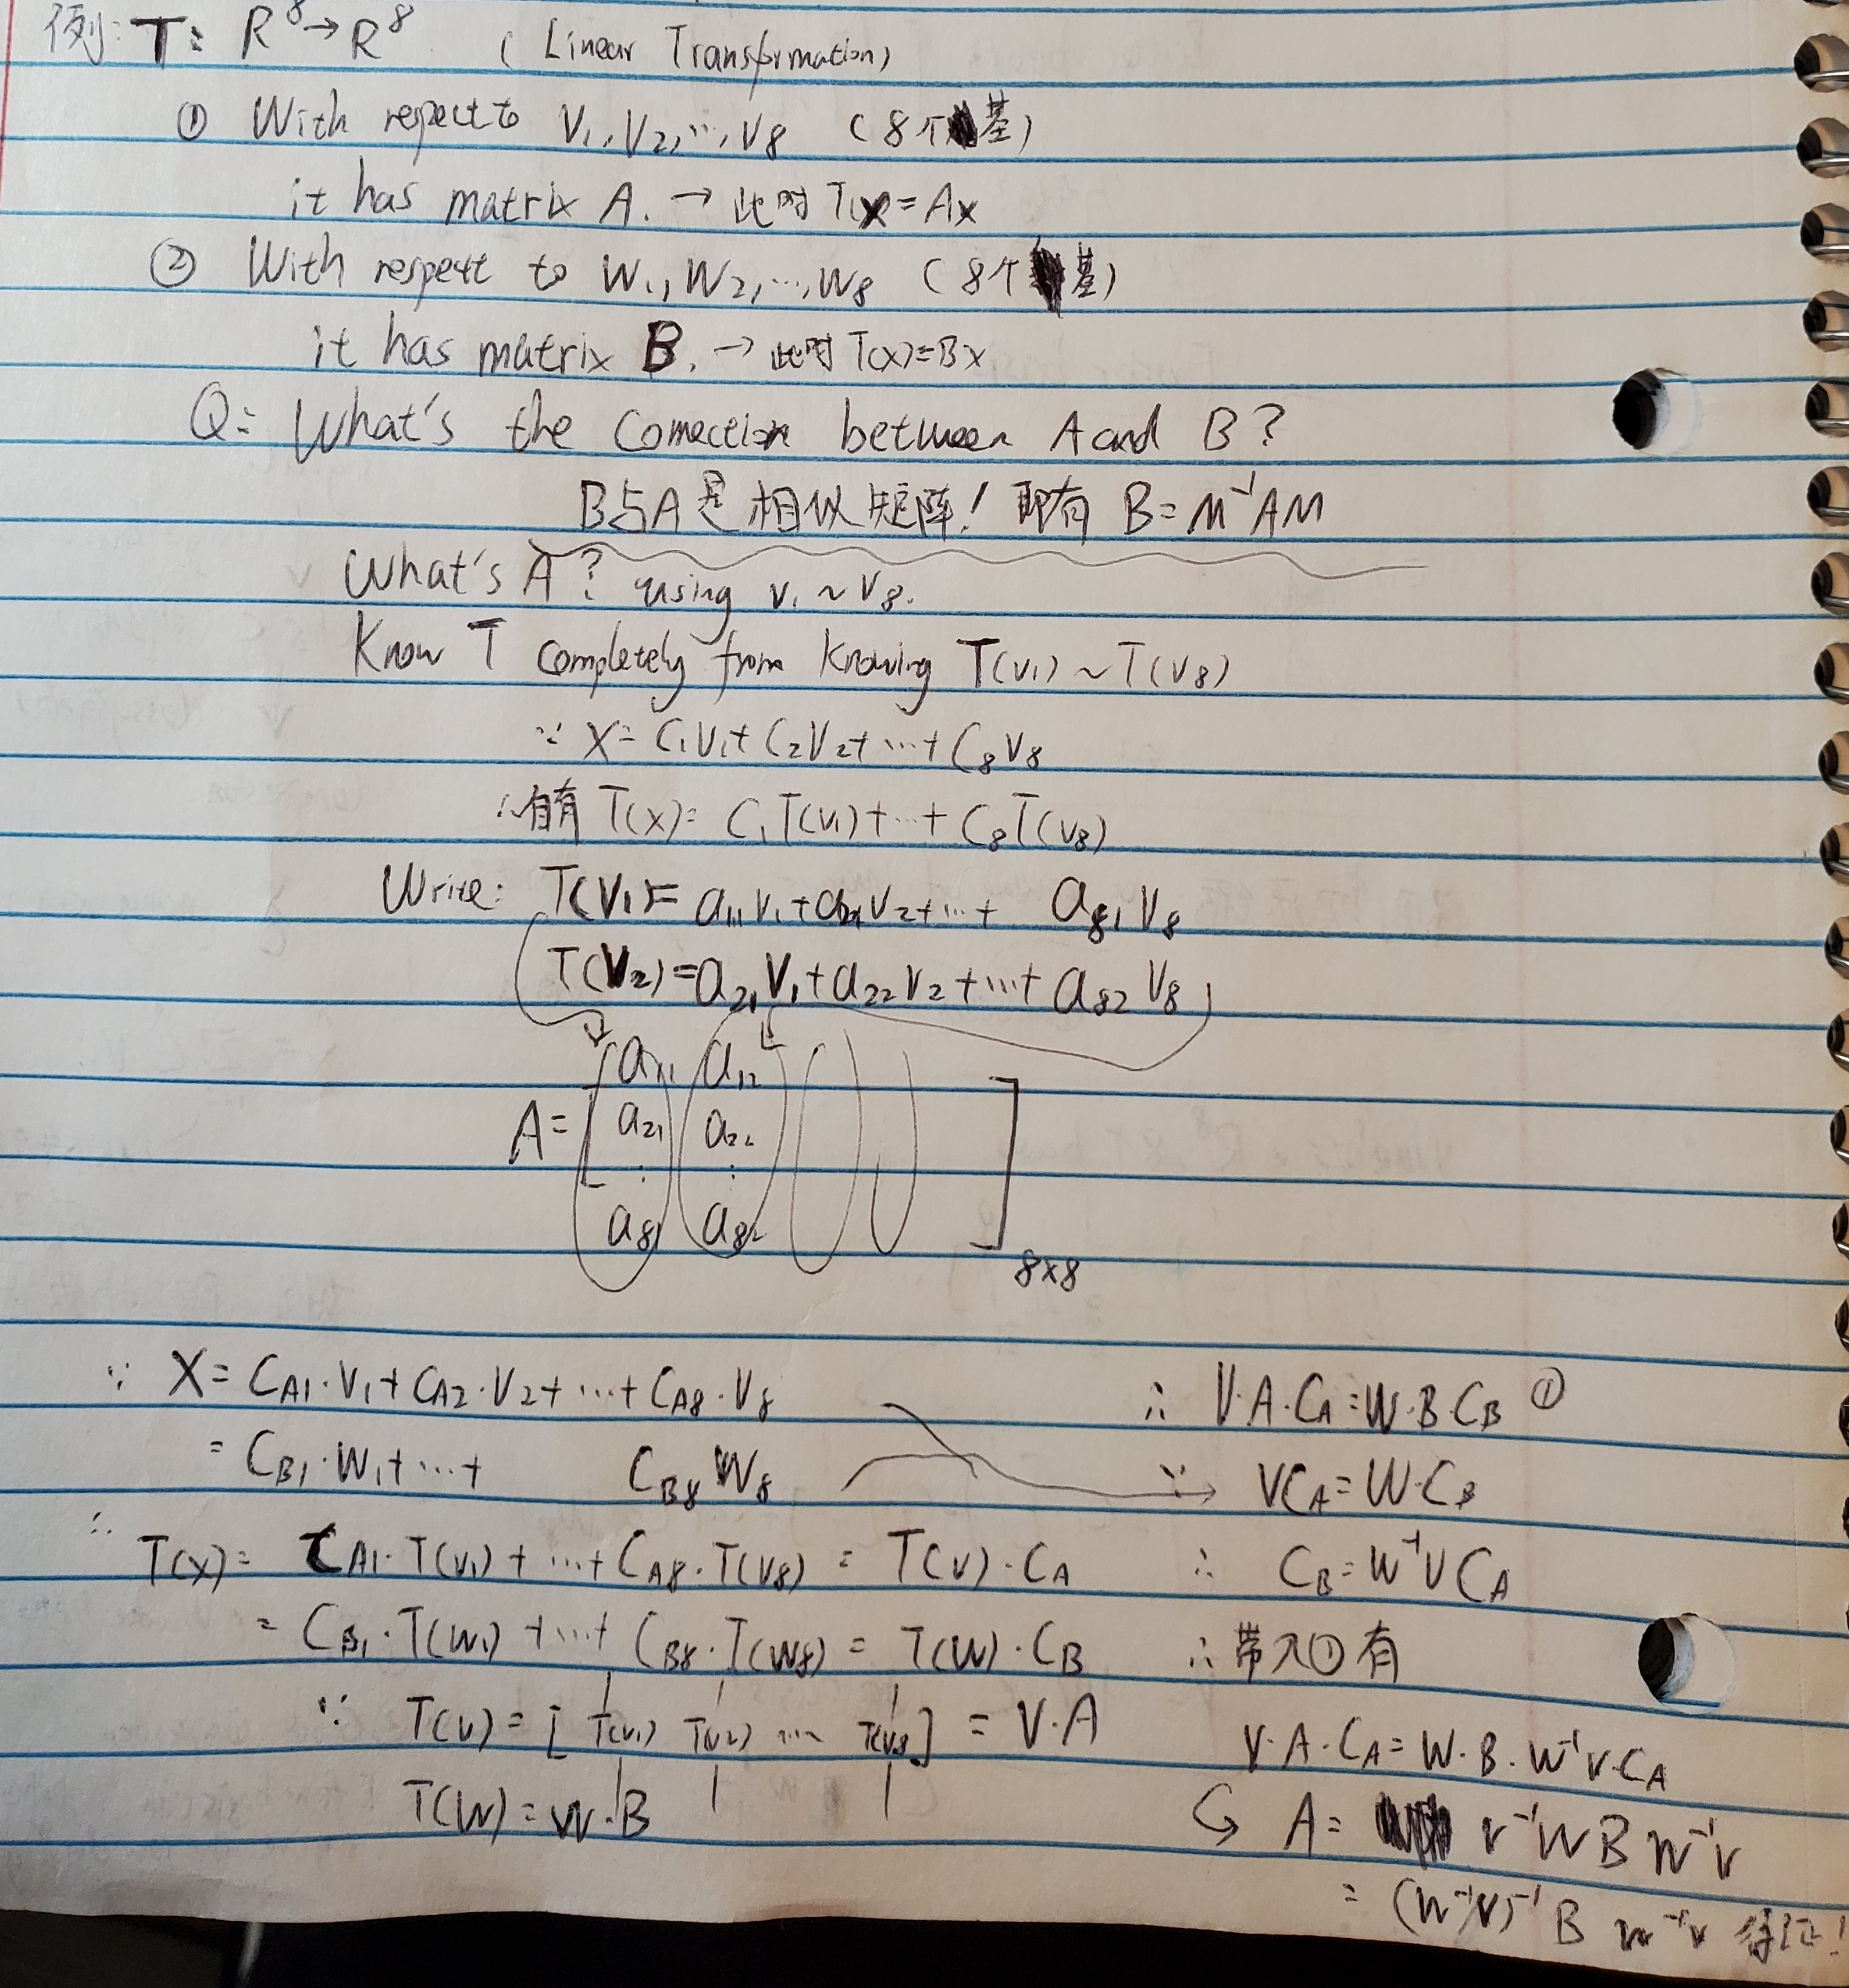 例: T: R⁸→R⁸ (Linear Transformation)
① With respect to V₁,V₂,…,V₈ (8个基)
it has matrix A. → 此时 T(x)=Ax
② With respect to W₁,W₂,…,W₈ (8个基)
it has matrix B. → 此时 T(x)=Bx
Q: What's the Connection between A and B?
B与A是相似矩阵! 即有 B=M⁻¹AM
What's A? using v₁~v₈.
Know T completely from knowing T(v₁)~T(v₈)
∵ X=C₁V₁+C₂V₂+…+C₈V₈
∴有 T(x)= C₁T(v₁)+…+C₈T(v₈)
Write: T(V₁)=a₁₁v₁+a₂₁v₂+…+ a₈₁v₈
T(V₂)=a₂₁V₁+a₂₂V₂+…+a₈₂V₈
a₁₁ a₁₂
A=[ a₂₁ a₂₂ ]
⋮ ⋮
a₈₁ a₈₂
8×8
∵ X=C_A1·V₁+C_A2·V₂+…+C_A8·V₈
=C_B1·W₁+…+ C_B8 W₈
∴ T(x)= C_A1·T(v₁)+…+C_A8·T(v₈) = T(V)·C_A
= C_B1·T(W₁)+…+C_B8·T(W₈) = T(W)·C_B
∵ T(V)=[ T(v₁) T(v₂) … T(v₈) ] = V·A
T(W)=W·B
∴ V·A·C_A=W·B·C_B ①
∵ → VC_A=W·C_B
∴ C_B=W⁻¹VC_A
∴带入①有
V·A·C_A=W·B·W⁻¹V·C_A
↪ A= V⁻¹WBW⁻¹V
= (W⁻¹V)⁻¹ B W⁻¹V 得证!